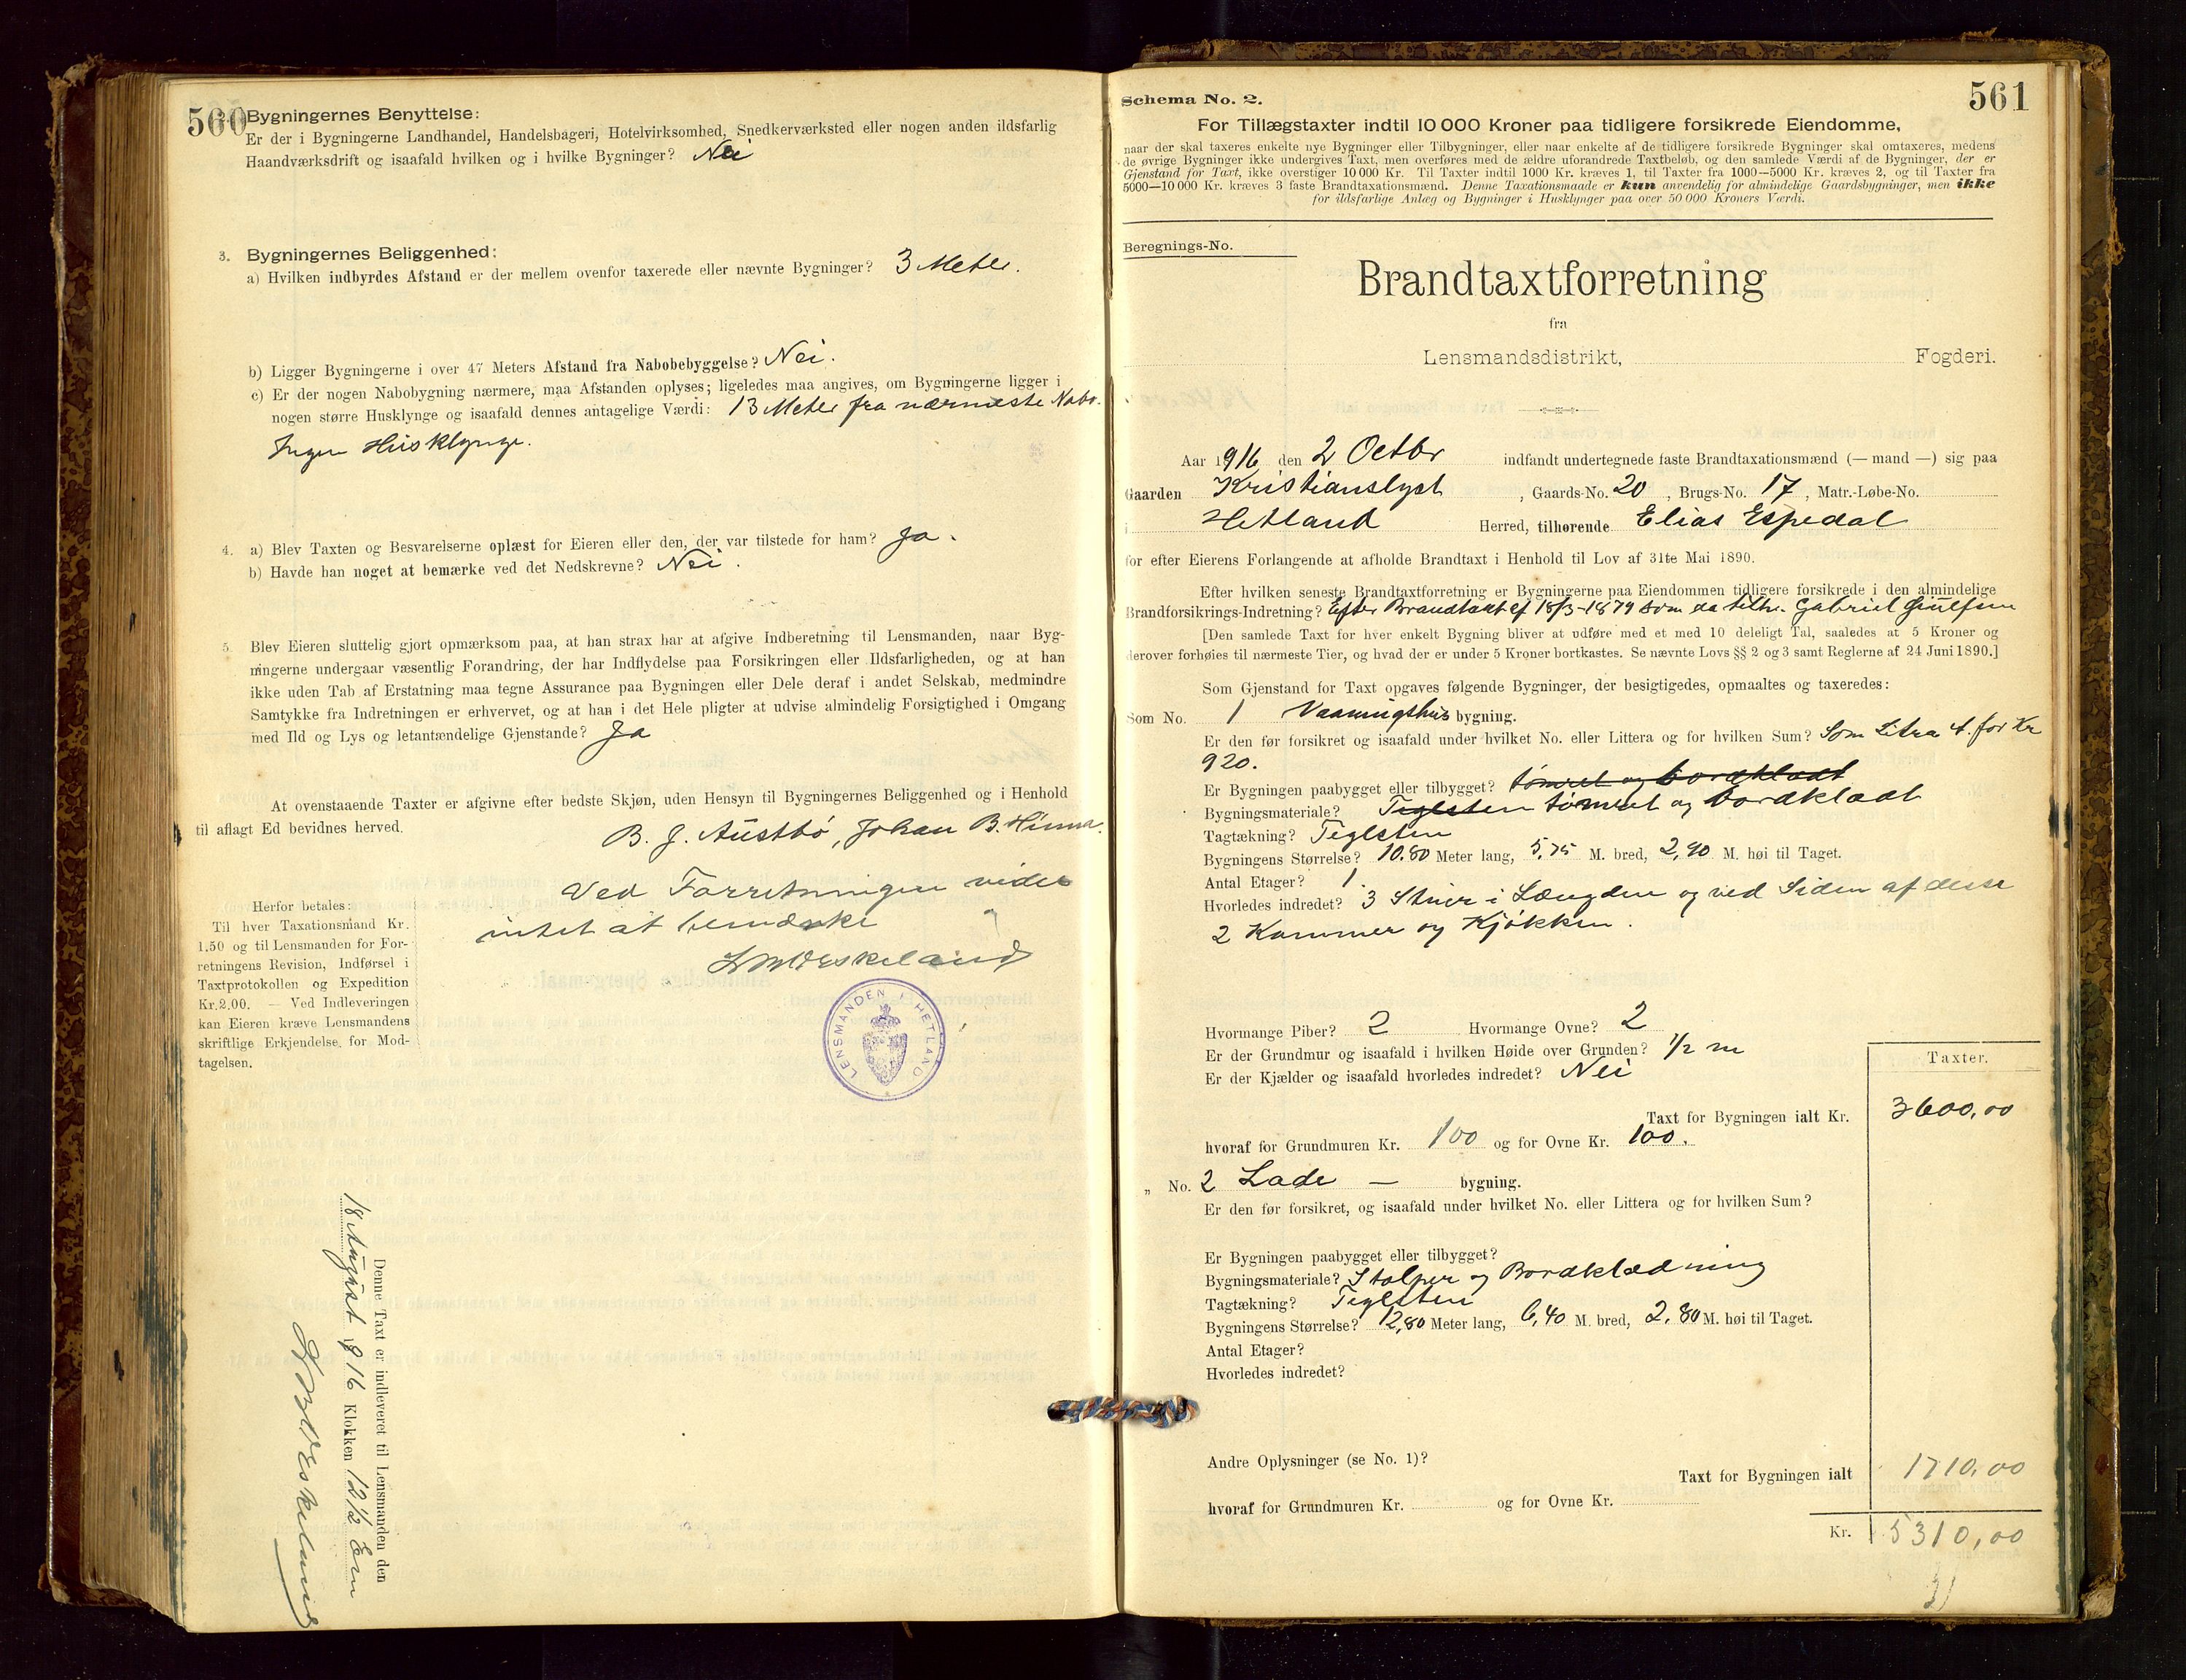 560
Bygningernes Benyttelse:
Er der i Bygningerne Landhandel, Handelsbageri, Hotelvirksomhed, Snedkerværksted eller nogen anden ildsfarlig
Haandværksdrift og isaafald hvilken og i hvilke Bygninger? Nei
3. Bygningernes Beliggenhed:
a) Hvilken indbyrdes Afstand er der mellem ovenfor taxerede eller nævnte Bygninger? 3 Meter.
b) Ligger Bygningerne i over 47 Meters Afstand fra Nabobebyggelse? Nei.
c) Er der nogen Nabobygning nærmere, maa Afstanden oplyses; ligeledes maa angives, om Bygningerne ligger i
nogen større Husklynge og isaafald dennes antagelige Værdi: 13 Meter fra nærmeste Nabo.
Ingen Husklynge.
4. a) Blev Taxten og Besvarelserne oplæst for Eieren eller den, der var tilstede for ham? Ja.
b) Havde han noget at bemærke ved det Nedskrevne? Nei.
5. Blev Eieren sluttelig gjort opmærksom paa, at han strax har at afgive Indberetning til Lensmanden, naar Byg-
ningerne undergaar væsentlig Forandring, der har Indflydelse paa Forsikringen eller Ildsfarligheden, og at han
ikke uden Tab af Erstatning maa tegne Assurance paa Bygningen eller Dele deraf i andet Selskab, medmindre
Samtykke fra Indretningen er erhvervet, og at han i det Hele pligter at udvise almindelig Forsigtighed i Omgang
med Ild og Lys og letantændelige Gjenstande? Ja
At ovenstaaende Taxter er afgivne efter bedste Skjøn, uden Hensyn til Bygningernes Beliggenhed og i Henhold
til aflagt Ed bevidnes herved.
B. J. Austbø, Johan B. Hinna.
Ved Forretningen vides
intet at bemærke
Eskeland
LENSMANDEN I HETLAND
Herfor betales:
Til hver Taxationsmand Kr.
1.50 og til Lensmanden for For-
retningens Revision, Indførsel i
Taxtprotokollen og Expedition
Kr. 2.00. — Ved Indleveringen
kan Eieren kræve Lensmandens
skriftlige Erkjendelse for Mod-
tagelsen.
Denne Taxt er indleveret til Lensmanden den
18 August 1916 Klokken 12 1/2 Em
Eskeland
561
Schema No. 2.
For Tillægstaxter indtil 10 000 Kroner paa tidligere forsikrede Eiendomme,
naar der skal taxeres enkelte nye Bygninger eller Tilbygninger, eller naar enkelte af de tidligere forsikrede Bygninger skal omtaxeres, medens
de øvrige Bygninger ikke undergives Taxt, men overføres med de ældre uforandrede Taxtbeløb, og den samlede Værdi af de Bygninger, der er
Gjenstand for Taxt, ikke overstiger 10 000 Kr. Til Taxter indtil 1000 Kr. kræves 1, til Taxter fra 1000—5000 Kr. kræves 2, og til Taxter fra
5000—10 000 Kr. kræves 3 faste Brandtaxationsmænd. Denne Taxationsmaade er kun anvendelig for almindelige Gaardsbygninger, men ikke
for ildsfarlige Anlæg og Bygninger i Husklynger paa over 50 000 Kroners Værdi.
Beregnings-No.
Brandtaxtforretning
fra
Lensmandsdistrikt, Fogderi.
Aar 1916 den 2 Octbr indfandt undertegnede faste Brandtaxationsmænd (— mand —) sig paa
Gaarden Kristianslyst, Gaards-No. 20, Brugs-No. 17, Matr.-Løbe-No.
i Hetland Herred, tilhørende Elias Espedal
for efter Eierens Forlangende at afholde Brandtaxt i Henhold til Lov af 31te Mai 1890.
Efter hvilken seneste Brandtaxtforretning er Bygningerne paa Eiendommen tidligere forsikrede i den almindelige
Brandforsikrings-Indretning? Efter Brandtaxt af 18/3-1879 som da tilh. Gabriel
[Den samlede Taxt for hver enkelt Bygning bliver at udføre med et med 10 deleligt Tal, saaledes at 5 Kroner og
derover forhøies til nærmeste Tier, og hvad der er under 5 Kroner bortkastes. Se nævnte Lovs §§ 2 og 3 samt Reglerne af 24 Juni 1890.]
Som Gjenstand for Taxt opgaves følgende Bygninger, der besigtigedes, opmaaltes og taxeredes:
Som No. 1 Vaaningshus bygning.
Er den før forsikret og isaafald under hvilket No. eller Littera og for hvilken Sum? Som Litra A. for Kr
920.
Er Bygningen paabygget eller tilbygget? tømret og bordklædt
Bygningsmateriale? Teglsten tømret og bordklædt
Tagtækning? Teglsten
Bygningens Størrelse? 10.80 Meter lang, 5,75 M. bred, 2,90 M. høi til Taget.
Antal Etager? 1.
Hvorledes indredet? 3 Stuer i Længden og ved Siden af disse
2 Kammer og Kjøkken.
Hvormange Piber? 2 Hvormange Ovne? 2
Er der Grundmur og isaafald i hvilken Høide over Grunden? 1/2 m
Er der Kjælder og isaafald hvorledes indredet? Nei
Taxter.
Taxt for Bygningen ialt Kr. 3600,00
hvoraf for Grundmuren Kr. 100 og for Ovne Kr. 100.
„ No. 2 Lade — bygning.
Er den før forsikret, og isaafald under hvilket No. eller Littera og for hvilken Sum?
Er Bygningen paabygget eller tilbygget?
Bygningsmateriale? Stolper og Bordklædning
Tagtækning? Teglsten
Bygningens Størrelse? 12,80 Meter lang, 6,40 M. bred, 2,80 M. høi til Taget.
Antal Etager?
Hvorledes indredet?
Andre Oplysninger (se No. 1)?
Taxt for Bygningen ialt 1710,00
hvoraf for Grundmuren Kr. og for Ovne Kr.
Kr. 5310,00